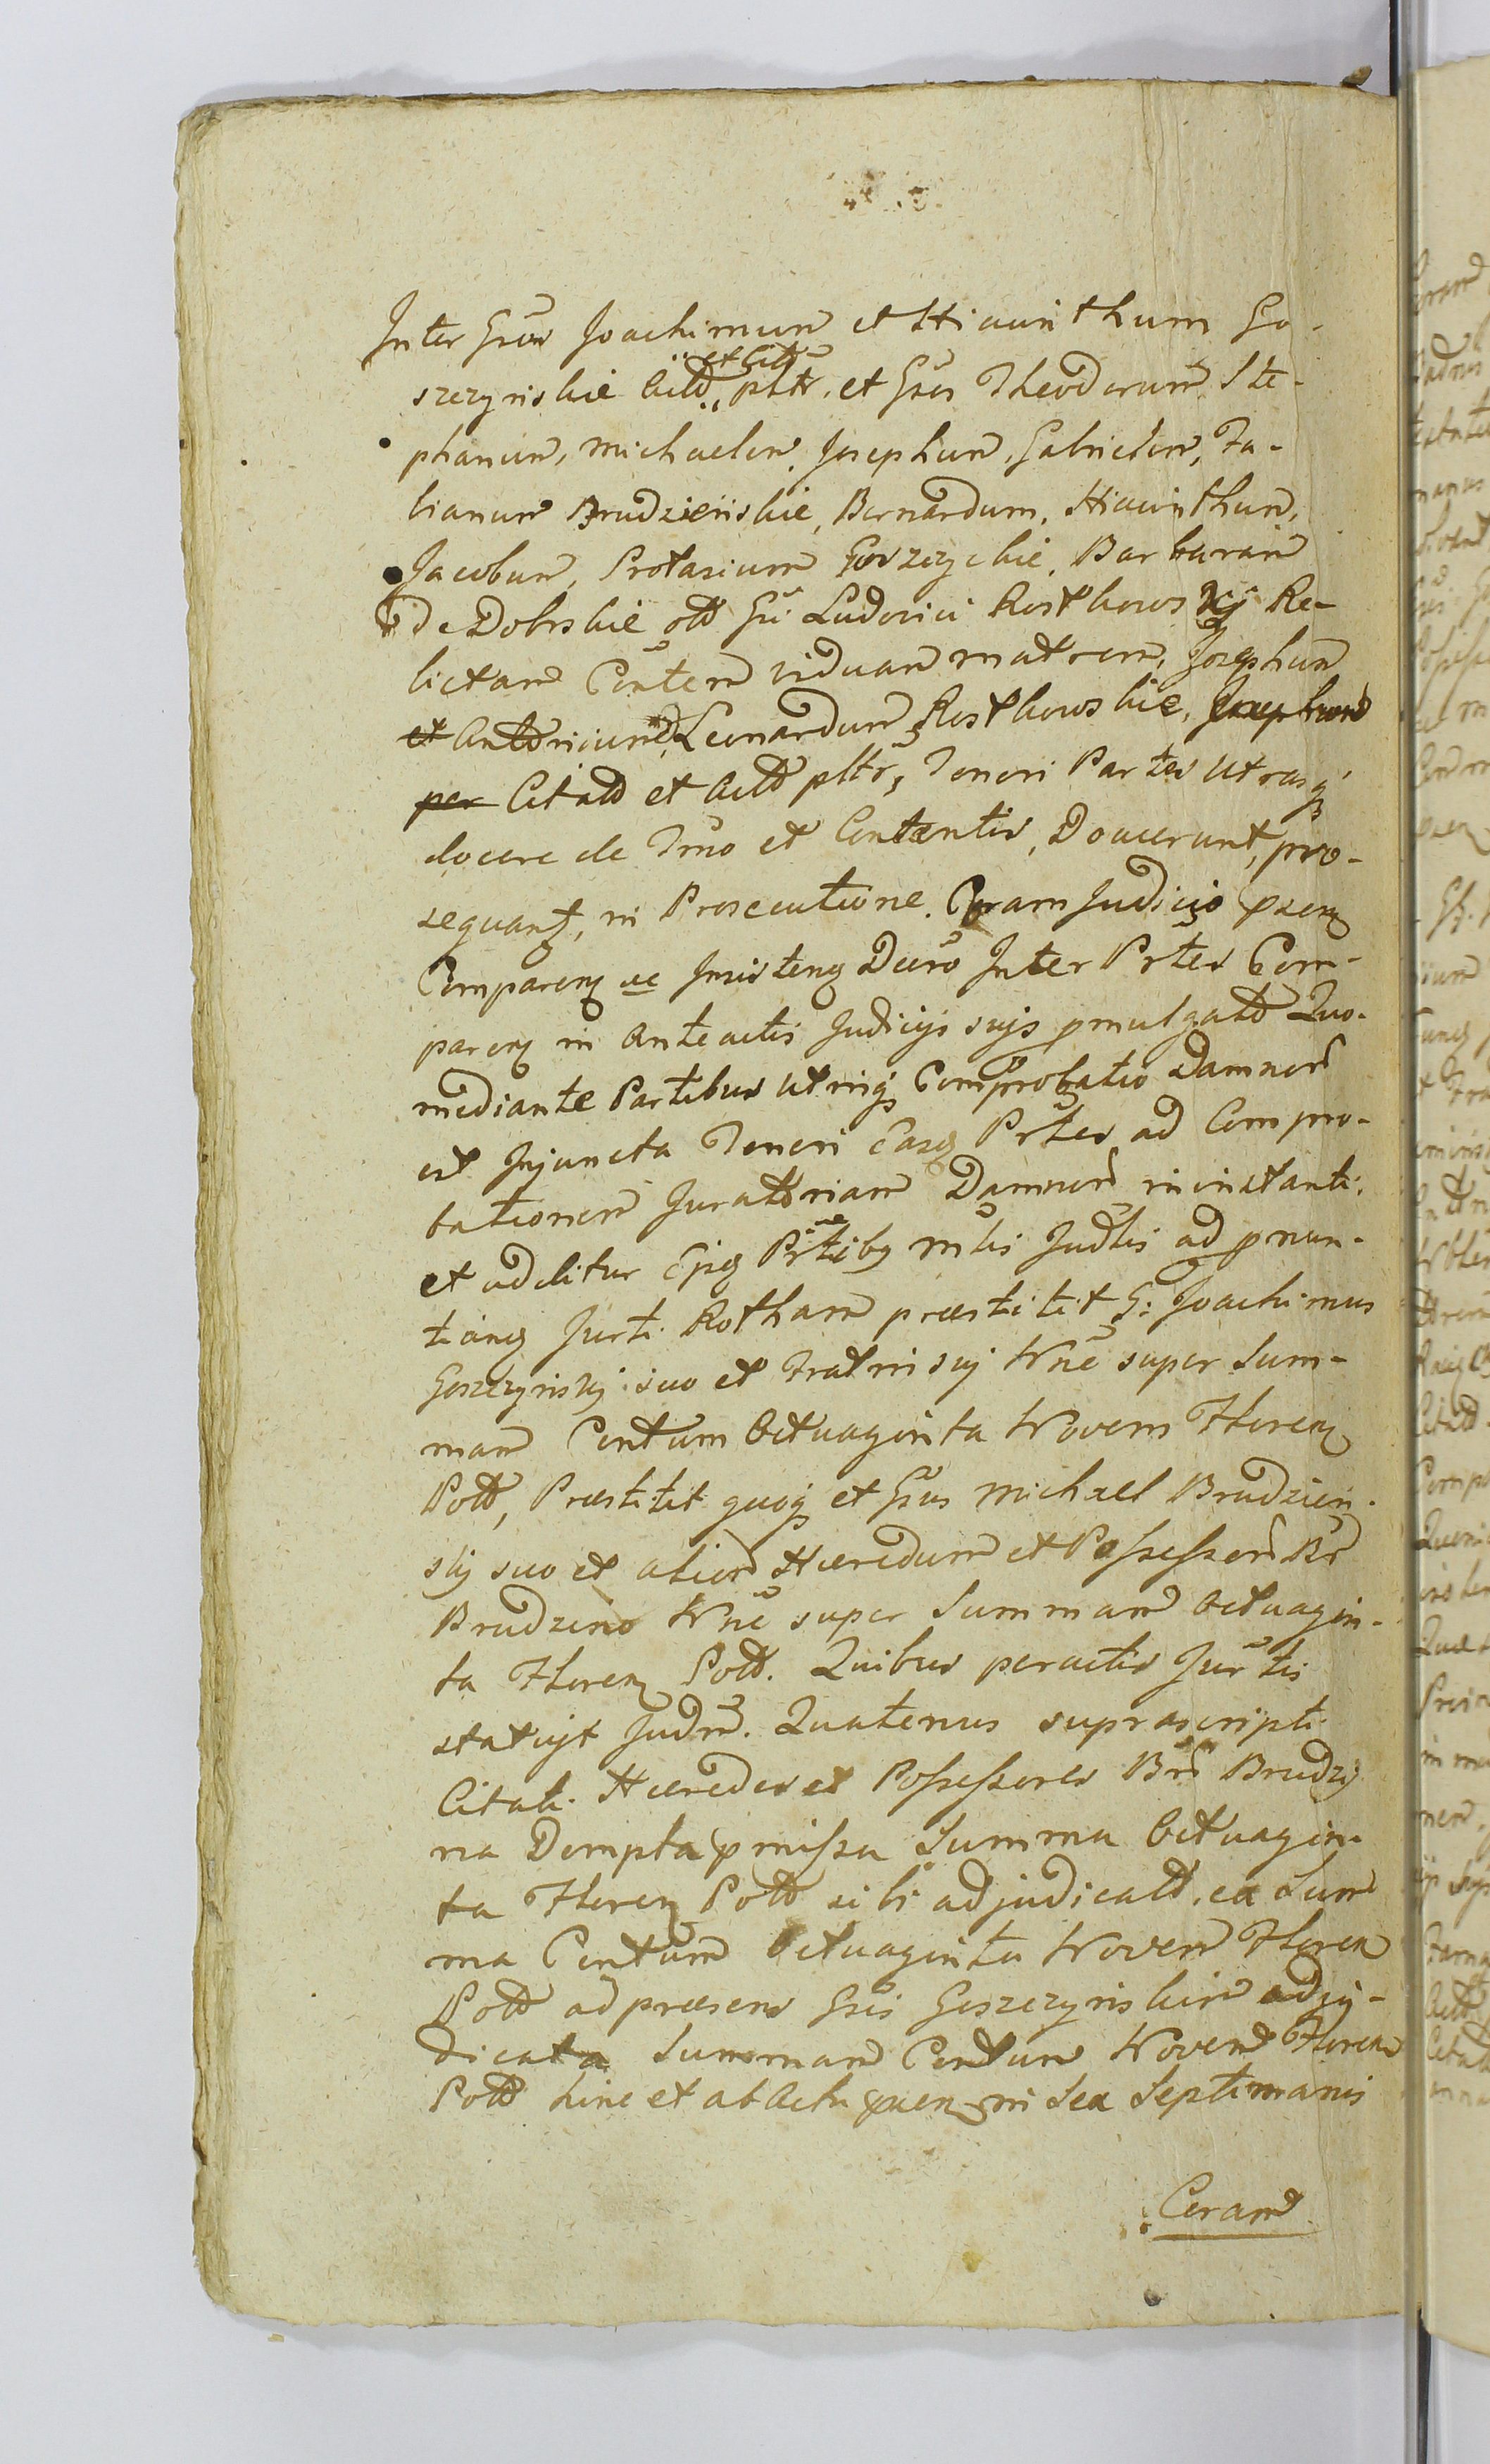 Inter Gnos Joachimum et Hiacinthum Go-
szczynskie Actt „et Citt„ pltr. et Gnos Theodorum, Ste-
phanum, Michaelem, Josephum, Gabrielem, Fa-
bianum Brudzieńskie, Bernardum, Hiacinthum,
Jacobum, Protasium Gorzczyckie, Barbaram
de Dobrskie ott Gn: Ludovici Rostkowskij Re-
lictam Contem viduam matrem, Josephum
et Antonium, Leonardum Rostkowskie, Josephum
per Citatt et Actt pltr, Teneri Partes utrasq
docere de Tmo et Contentis, Docuerunt, pro-
sequant, in Prosecutione. Coram Judicio prsen
Comparen ac Insisten Decro Inter Prtes Com-
paren in Anteactis Judicijs sujs pmulgatt Quo-
mediante Partibus utrinq Comprobatio Damnor
est Injuncta Teneri Easq Prtes ad Compro-
bationem Juratoriam Damnor in instanti.
et additur Ejsq Prtibq mlis Judlis ad pnun-
tiang Jurti. Rotham praestitit G: Joachimus
Goszczynskj suo et Fratris suj Nne super Sum-
mam Centum Octuaginta Novem Floren
Pott, Praestitit quoq et Gnus Michael Brudzien-
skj suo et alior Haeredum et Possessor Br
Brudzino Nne super Summam Octuagin-
ta Floren Pott. Quibus peractis Jurtis
statuit Judm. Quatenus suprascripti
Citati. Haeredes et Possessores Br Brudzi
na Dempta pmissa Summa Octuagin-
ta Floren Pott sibi adjudicatt, ea Sum
ma Centum Octuaginta Novem Floren
Pott ad praesens Gnis Goszczynskim adju-
dicata Summam Centum Novem Floren
Pott hinc et ab Actu prsen in Sex Septimanis
Coram